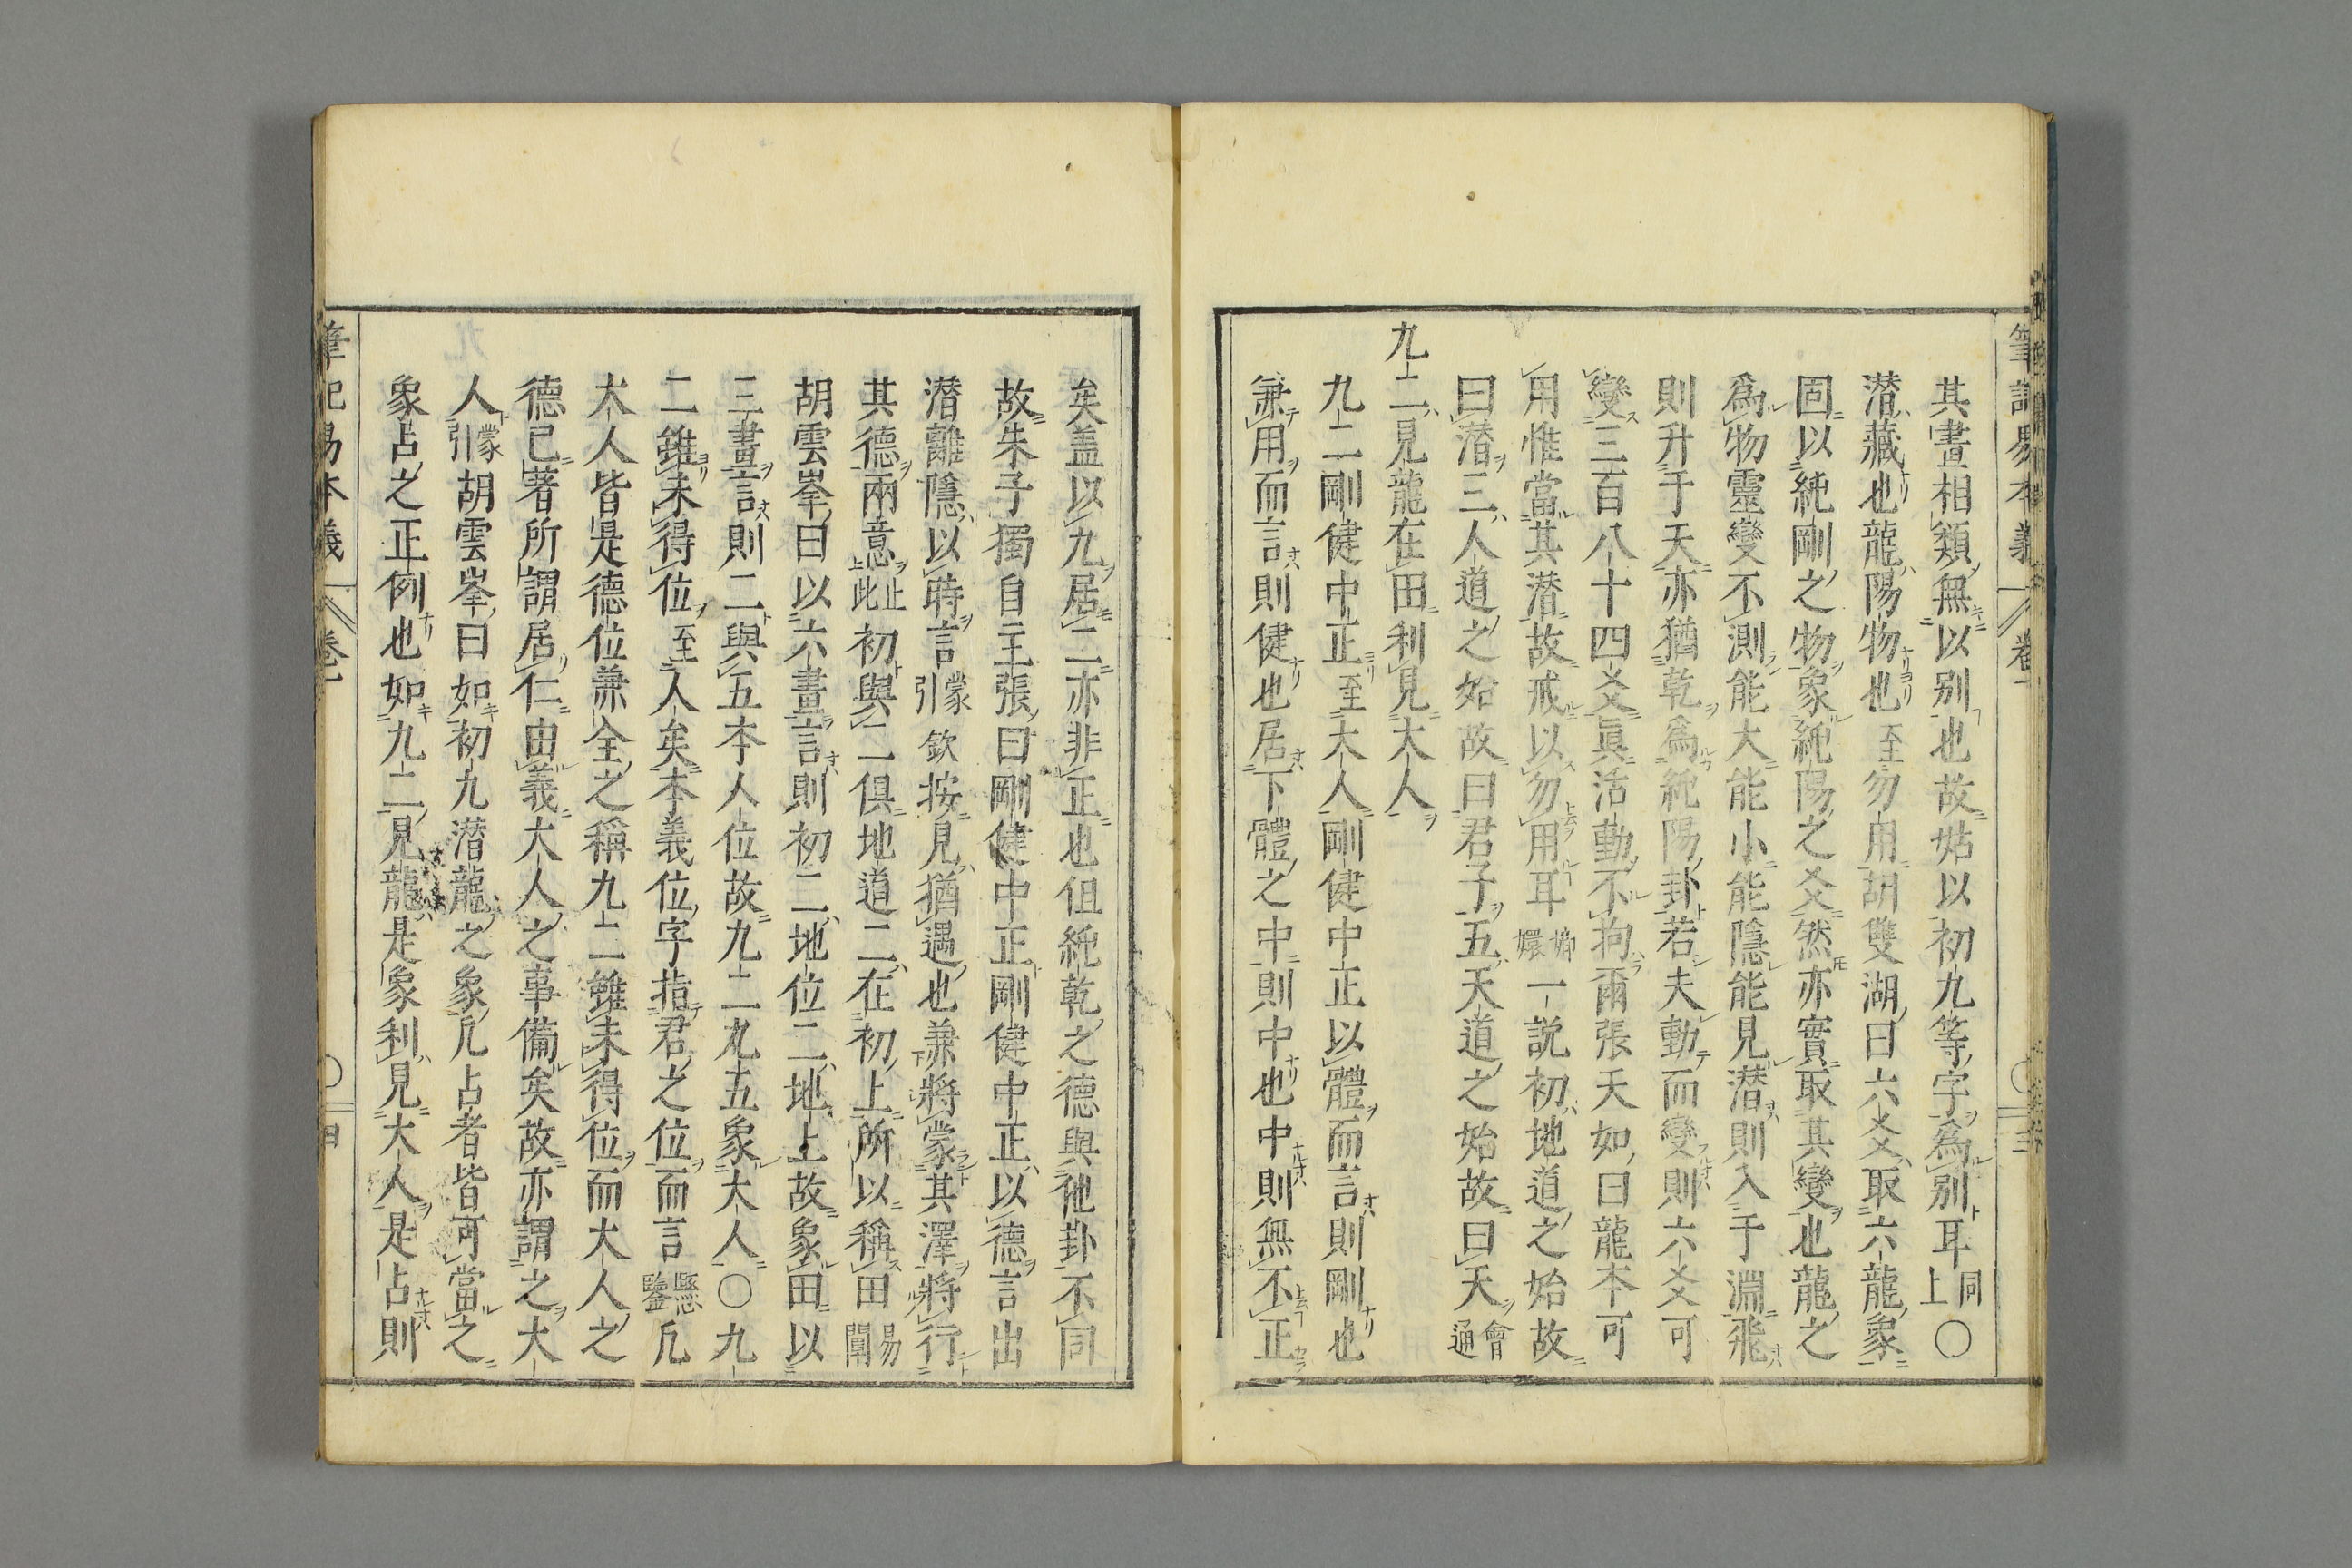 筆記易本義 卷一
其畫相類無以別也故姑以初九等字為別耳同上〇
潜藏也龍陽物也至勿用胡雙湖曰六爻取六龍象
固以純剛之物象純陽之爻然亦實取其變也龍之
為物靈變不測能大能小能隱能見潜則入于淵飛
則升于天亦猶乾為純陽卦若夫動而變則六爻可
變三百八十四爻眞活動不拘爾張天如曰龍本可
用惟當其潜故戒以勿用耳嫏嬛一説初地道之始故
曰潜三人道之始故曰君子五天道之始故曰天會通
九二見龍在田利見大人
九二剛健中正至大人剛健中正以體而言則剛也
兼用而言則健也居下體之中則中也中則無不正
矣盖以九居二亦非正也但純乾之德與他卦不同
故朱子獨自主張曰剛健中正剛健中正以德言出
潜離隱以時言蒙引欽按見猶遇也兼將蒙其澤將行
其德兩意上此止初與二俱地道二在初上所以稱田易闡
胡雲峯曰以六畫言則初二地位二地上故象田以
三畫言則二與五本人位故九二九五象大人〇九
二雖未得位至人矣本義位字指君之位而言懸鑒凡
大人皆是德位兼全之稱九二雖未得位而大人之
德已著所謂居仁由義大人之事備矣故亦謂之大
人蒙引胡雲峯曰如初九潜龍之象凡占者皆可當之
象占之正例也如九二見龍是象利見大人是占則
筆記易本義 卷一